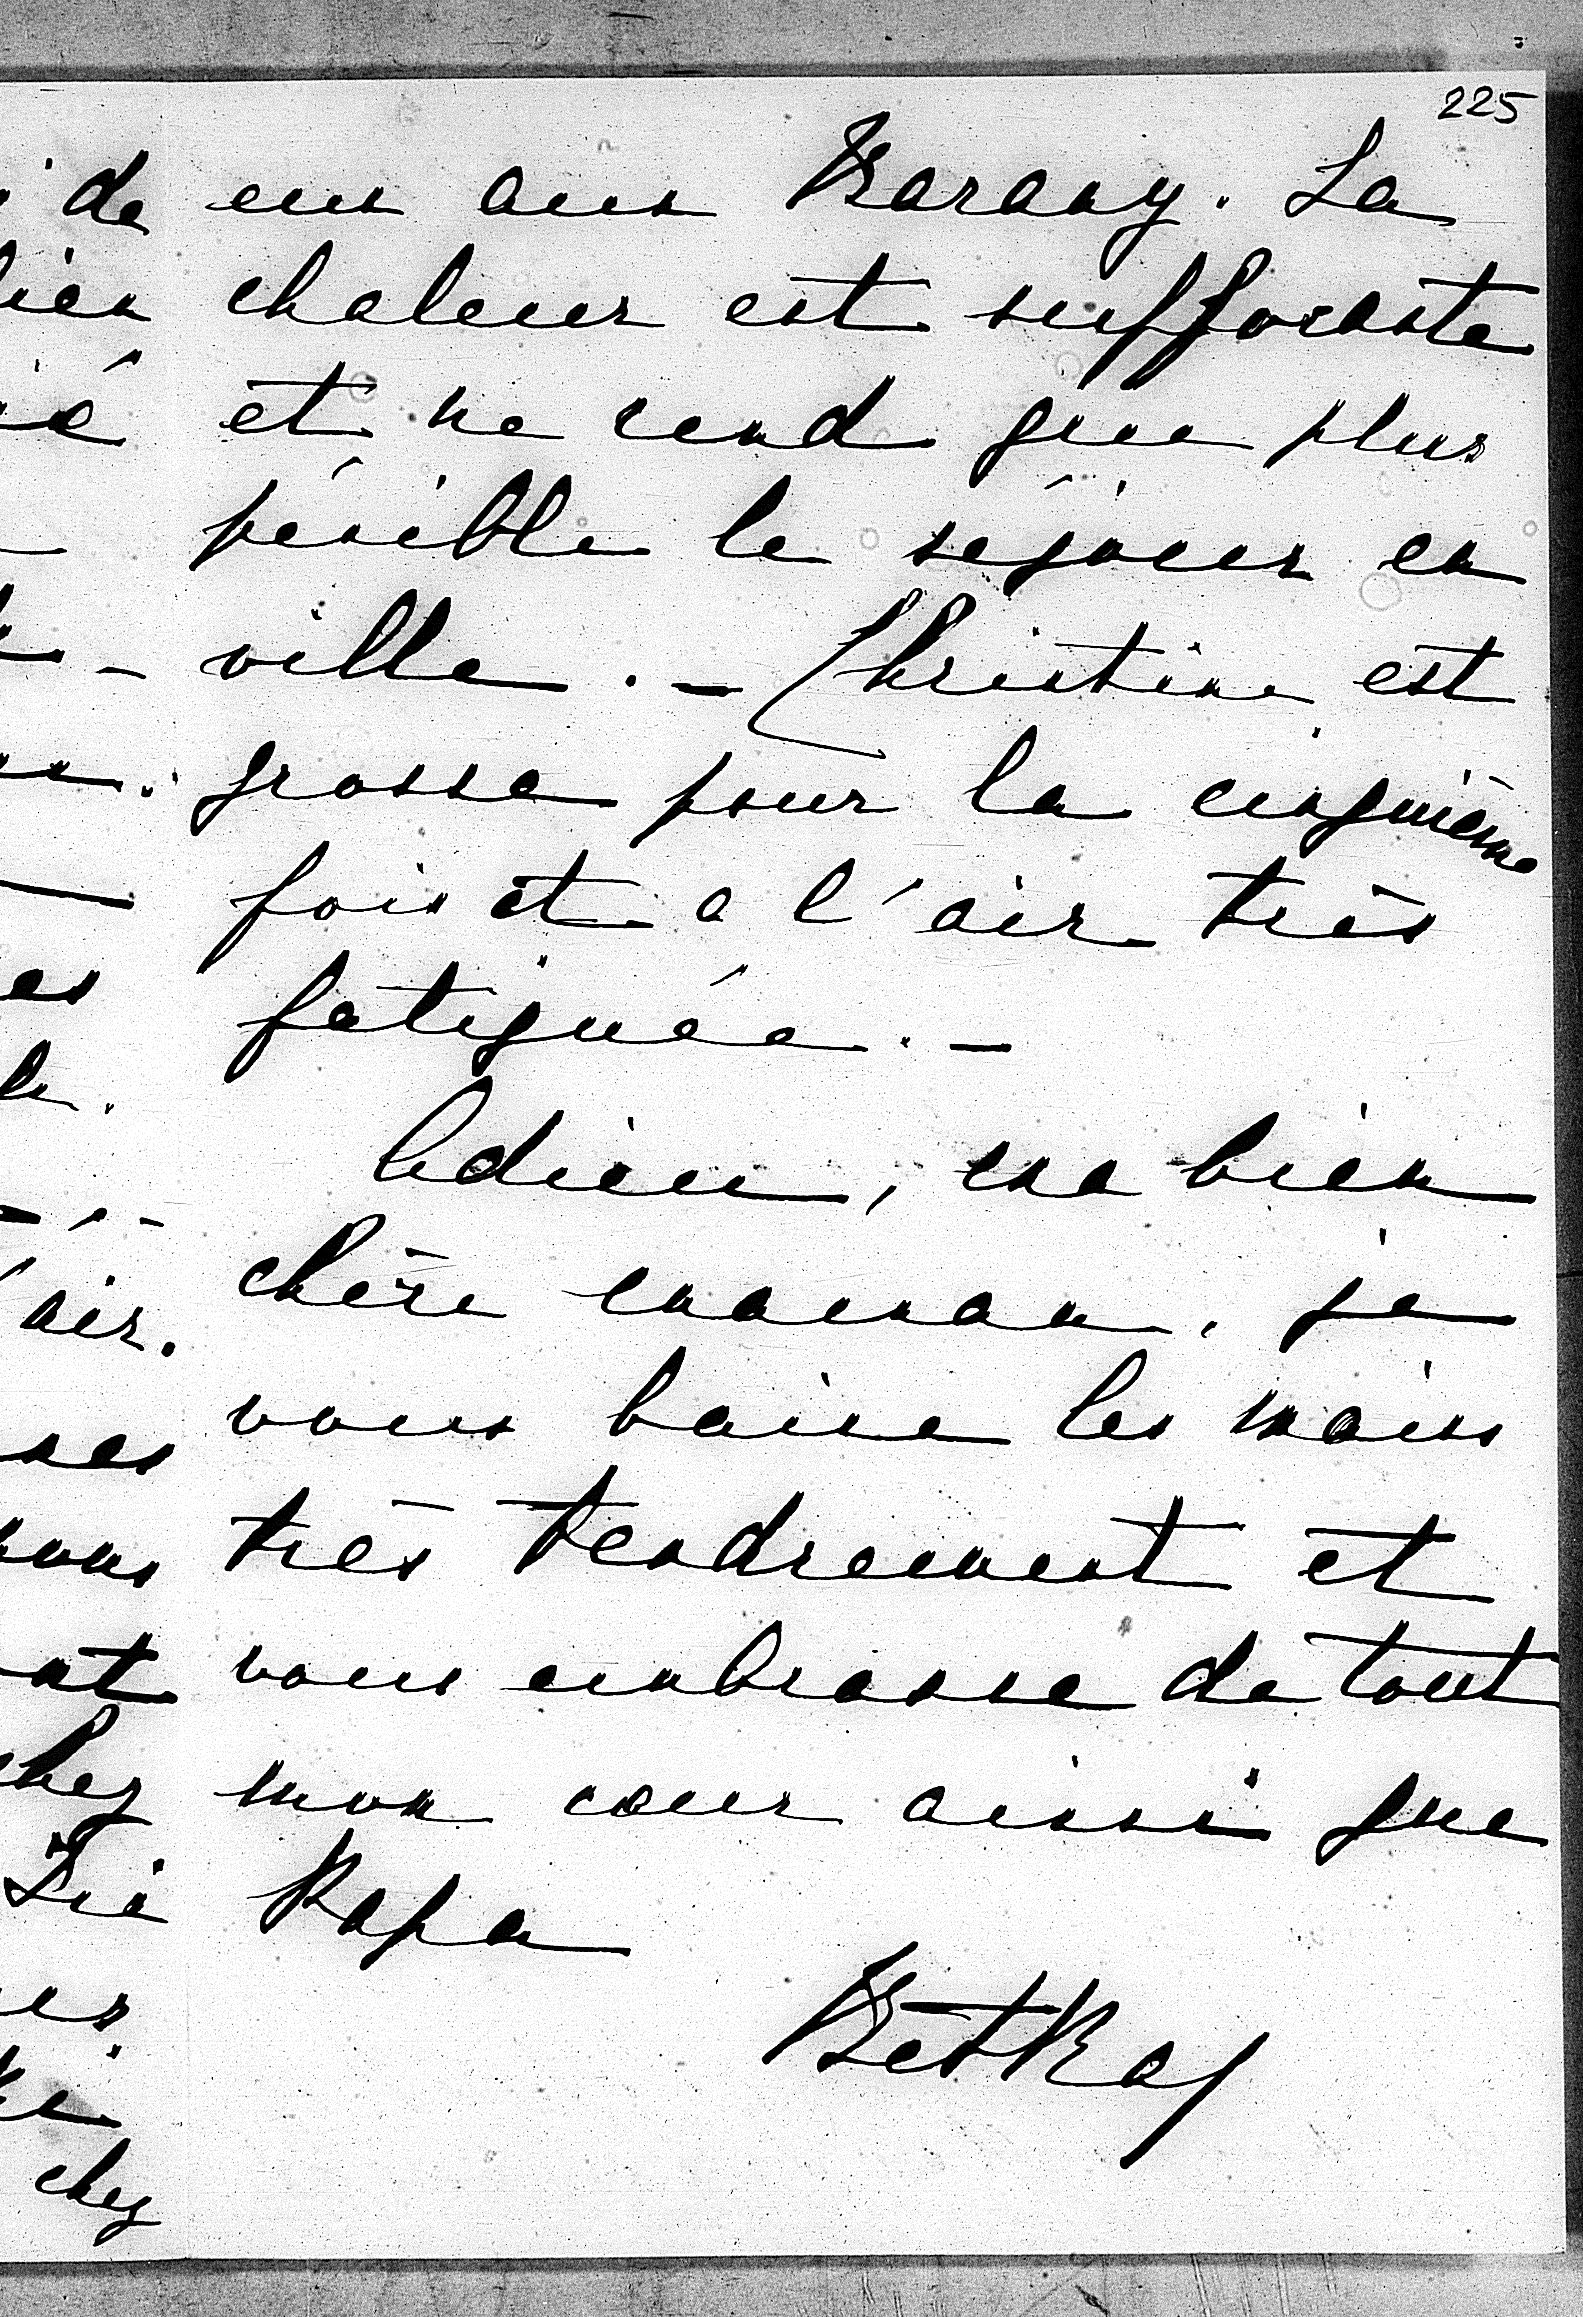 225
eux aux Barany. La
chaleur est suffocante
et ne rend que plus
pénible le séjour en
ville. – Christine est
grosse pour la cinquième
fois et a l'air très
fatiguée. –
Adieu, ma bien
chère maman, je
vous baise les mains
très tendrement et
vous embrasse de tout
mon cœur ainsi que
Papa
de
é
es
air.
nous
chez
chez